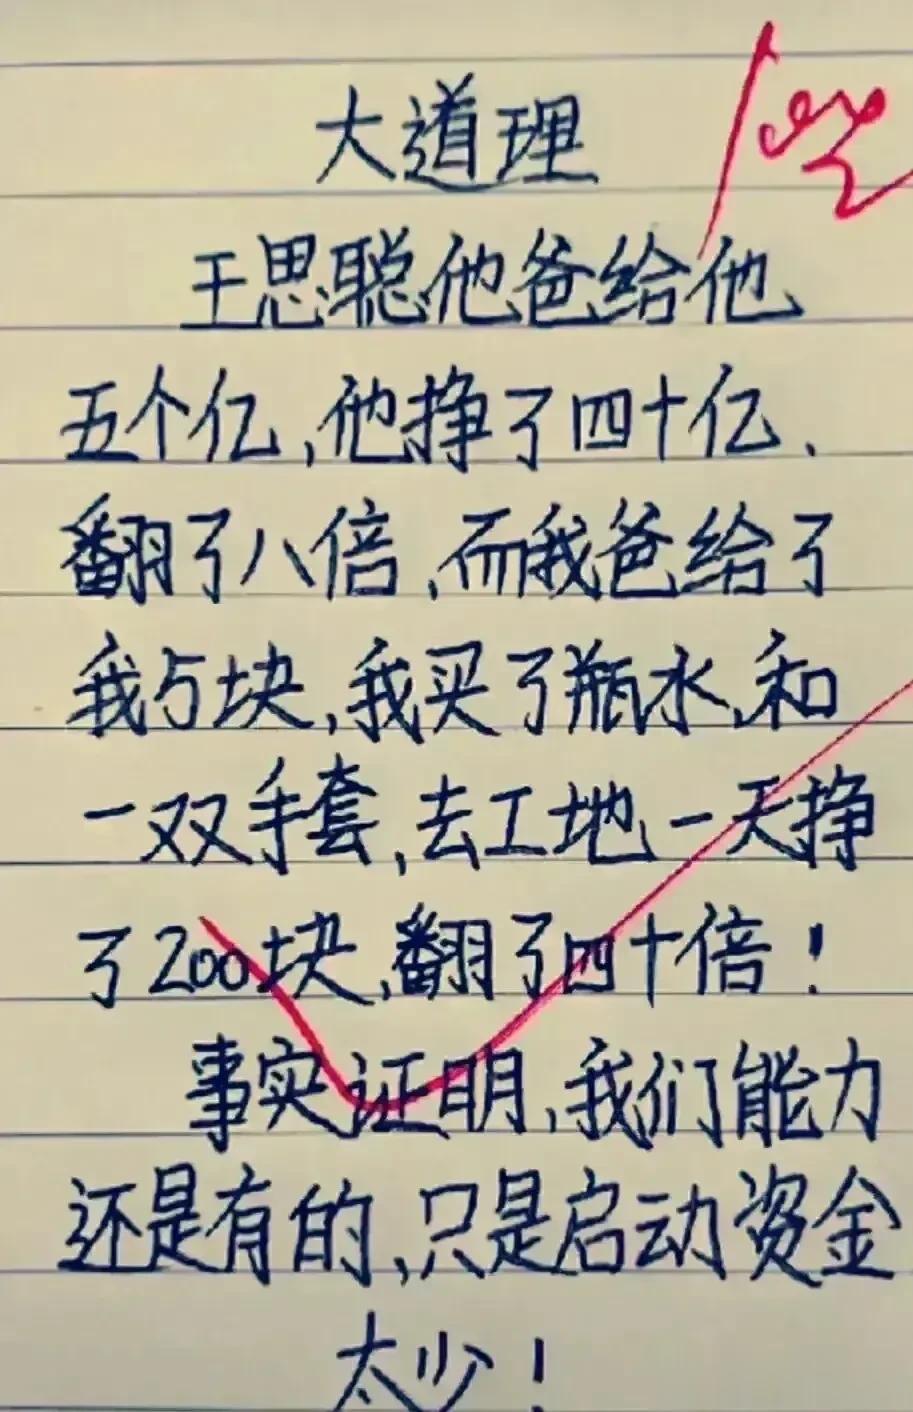 大道理
王思聪他爸给他
五个亿,他挣了四十亿、
翻了八倍,而我爸给了
我5块,我买了瓶水,和
一双手套,去工地一天挣
了200块,翻了四十倍!
事实证明,我们能力
还是有的,只是启动资金
太少!